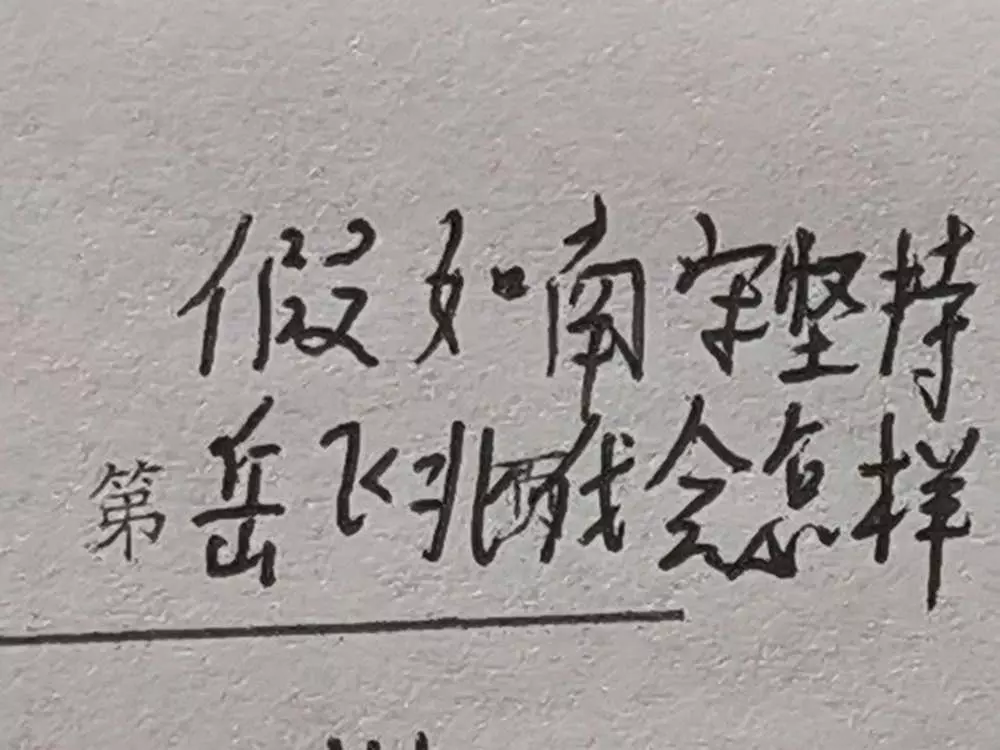 假如南宋坚持
第 岳飞北伐会怎样